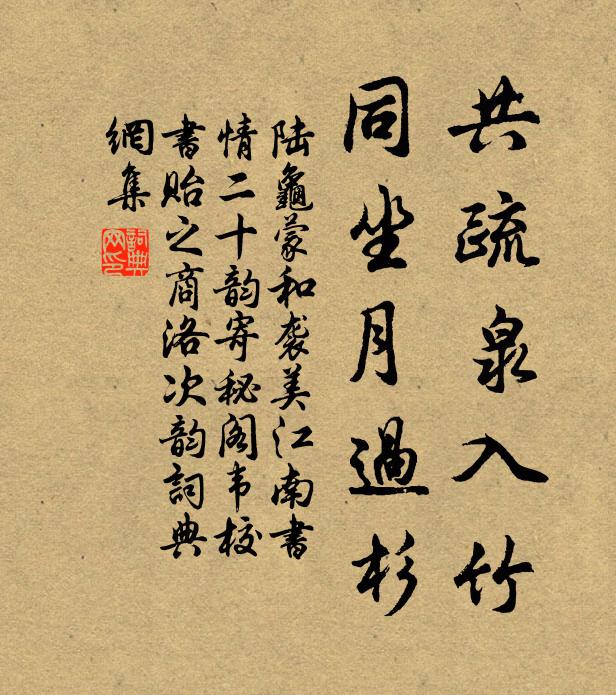 共疏泉入竹
同坐月過杉
陸龜蒙和袭美江南書
情二十韵寄秘阁韦校
書貽之商洛次韵詞典
網集
詞典網印